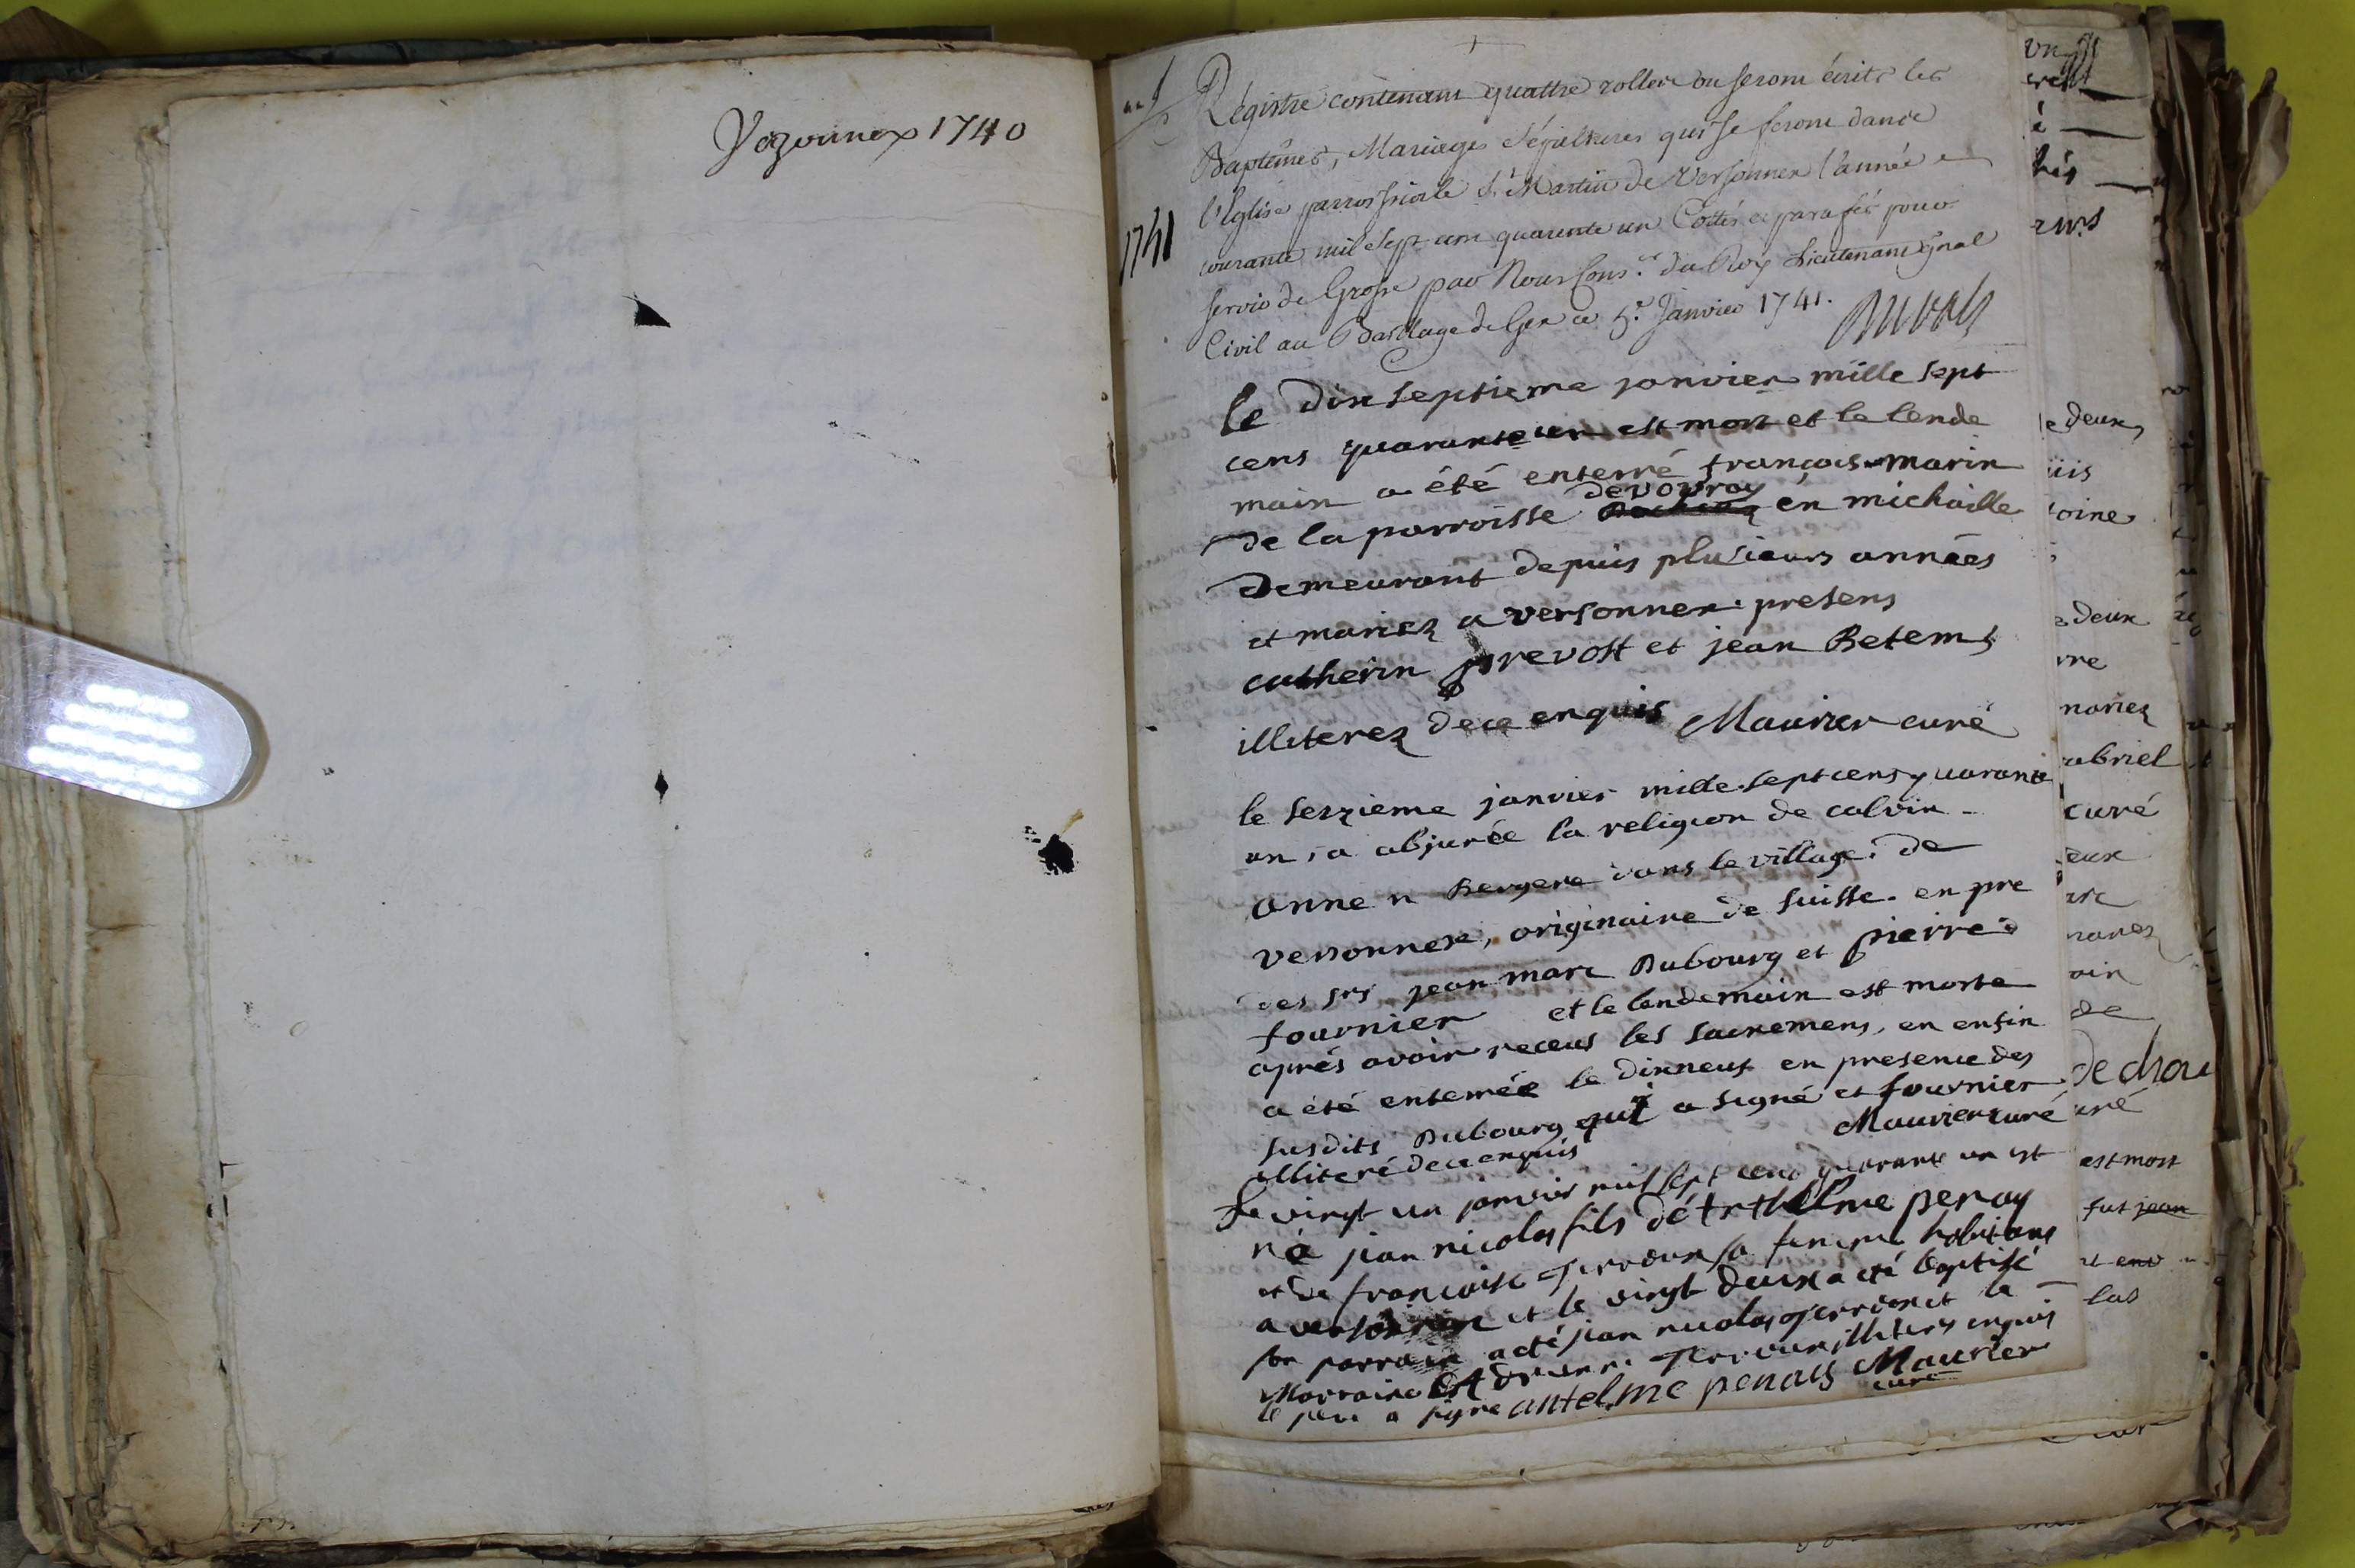 Vezonnex 1740
1741
Régistre contenant quattre rolles ou seront écrits les
Baptêmes, Mariages Sépultures qui se feront dans
l'Eglise parroissiale St Martin de Versonnex l'année
courante mil sept cent quarente un Cottés et parafés pour
servir de Grosse par Nous Cons.er du Roy Lieutenant gñal
Civil au Bailliage de Gex ce 5.e Janvier 1741.
le dix septieme janvier mille sept
cens quarante un est mort et le lende
main a été enterré françois marin
devovray
de la parroisse en michaille
demeurant depuis plusieurs années
et mariez a versonnex. presens
catherin prevost et jean Betems
illiterez de ce enquis Maurier curé
le seszieme janvier mille septcens quarante
un, a abjurée la religion de calvin -
anne n Bergere dans le village de
versonnex, originaire de suisse. en pre
des srs jean marc Dubourg et pierre
fournier et le lendemain est morte
aprés avoir receus les sacremens, en enfin
a été enterrée le dixneuf en presence des
susdits Dubourg qui a signé et fournier
illiteré de ce enquis Maurier curé
Le vingt un janvier mil sept cens quarante un est
né jean nicolas fils d' penay
et de francoise Perroux sa femme habitans
a versonnex et le vingt deux a eté baptisé
son parrain a eté jean nicolas et la
Marraine illiters enquis
le pere a signe antelme penais Maurier
curé
e deux
uis
toine
deux
vre
mariez
abriel
curé
eux
nariez
oin
de
de chou
uré
est mort
fut jean